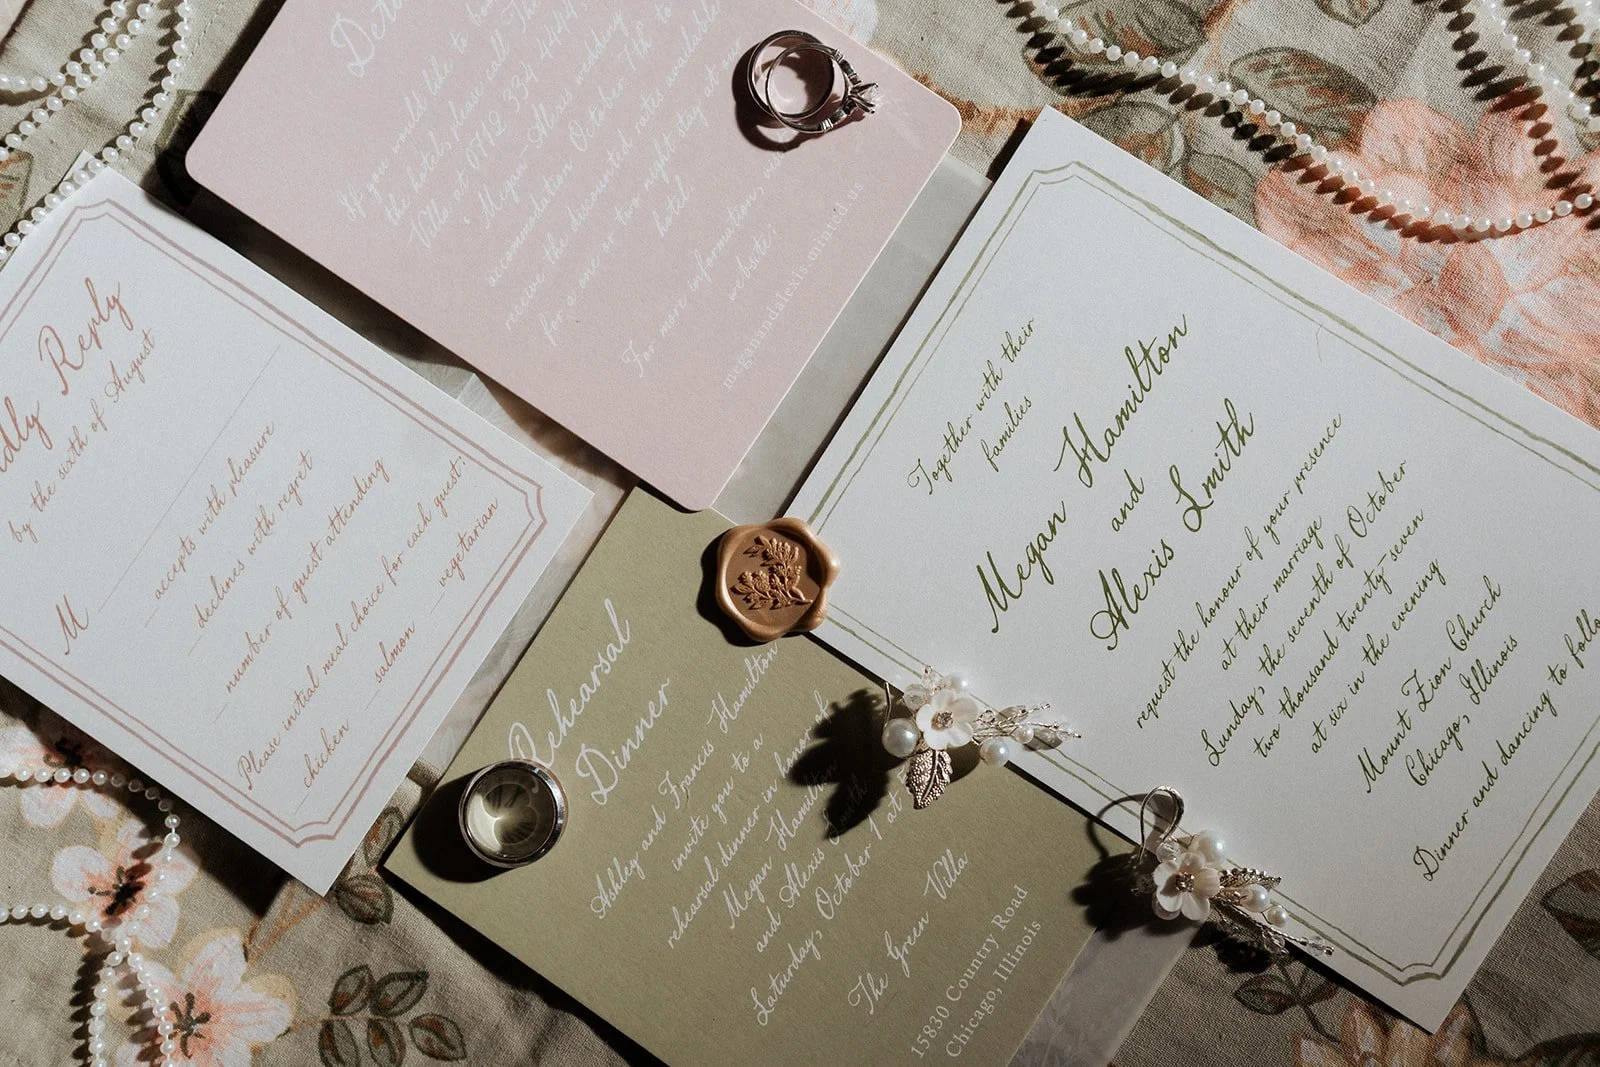 If you would like to
the hotel, please call The
Villa at 0712 334 4444,
Megan-Alexis wedding
accommodation October 7th to
receive the discounted rates available
for a one or two night stay at our
hotel.
For more information,
website:
meganandalexis.minted.us
Reply
by the sixth of August
M
accepts with pleasure
declines with regret
number of guest attending
Please initial meal choice for each guest:
chicken salmon vegetarian
Rehearsal
Dinner
Ashley and Francis Hamilton
invite you to a
rehearsal dinner in honor of
Megan Hamilton
and Alexis Smith
Saturday, October 1 at
The Green Villa
15830 Country Road
Chicago, Illinois
Together with their
families
Megan Hamilton
and
Alexis Smith
request the honour of your presence
at their marriage
Sunday, the seventh of October
two thousand twenty-seven
at six in the evening
Mount Zion Church
Chicago, Illinois
Dinner and dancing to follo